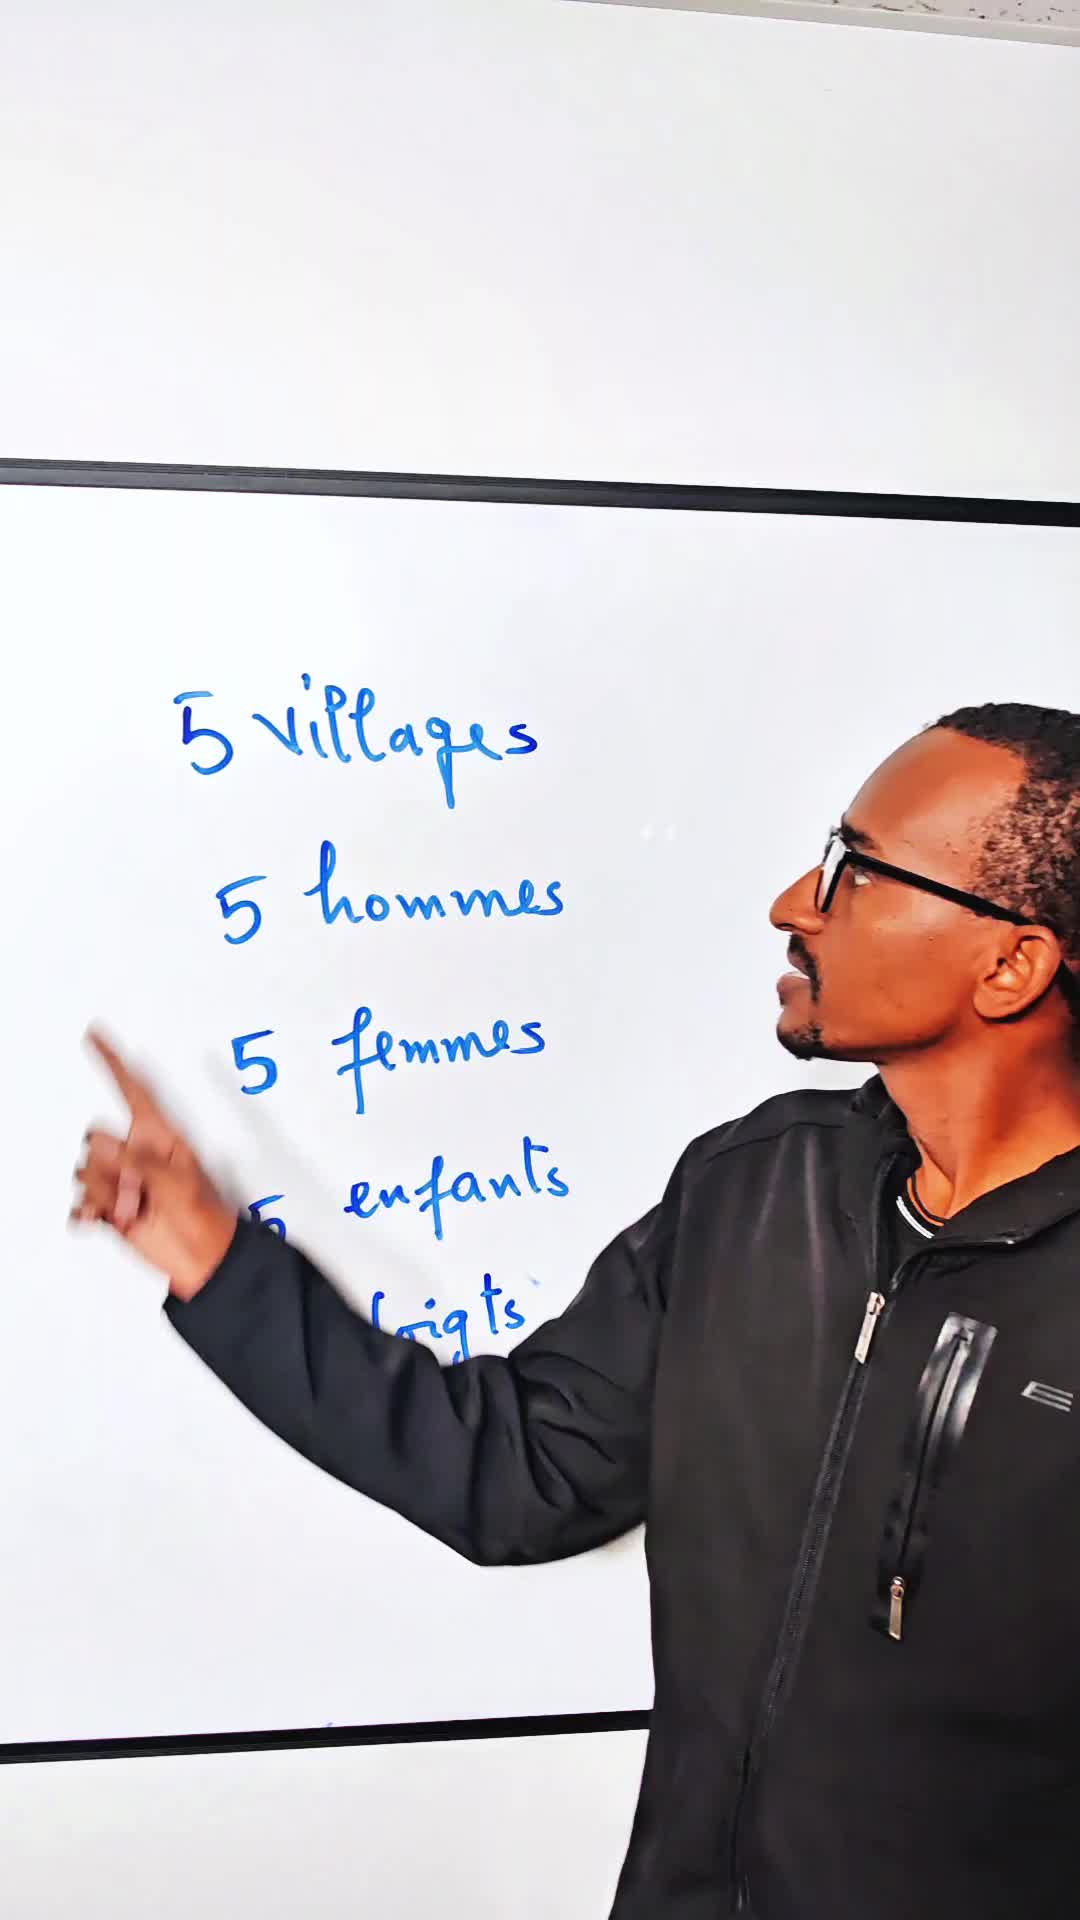 5 villages
5 hommes
5 femmes
5 enfants
doigts